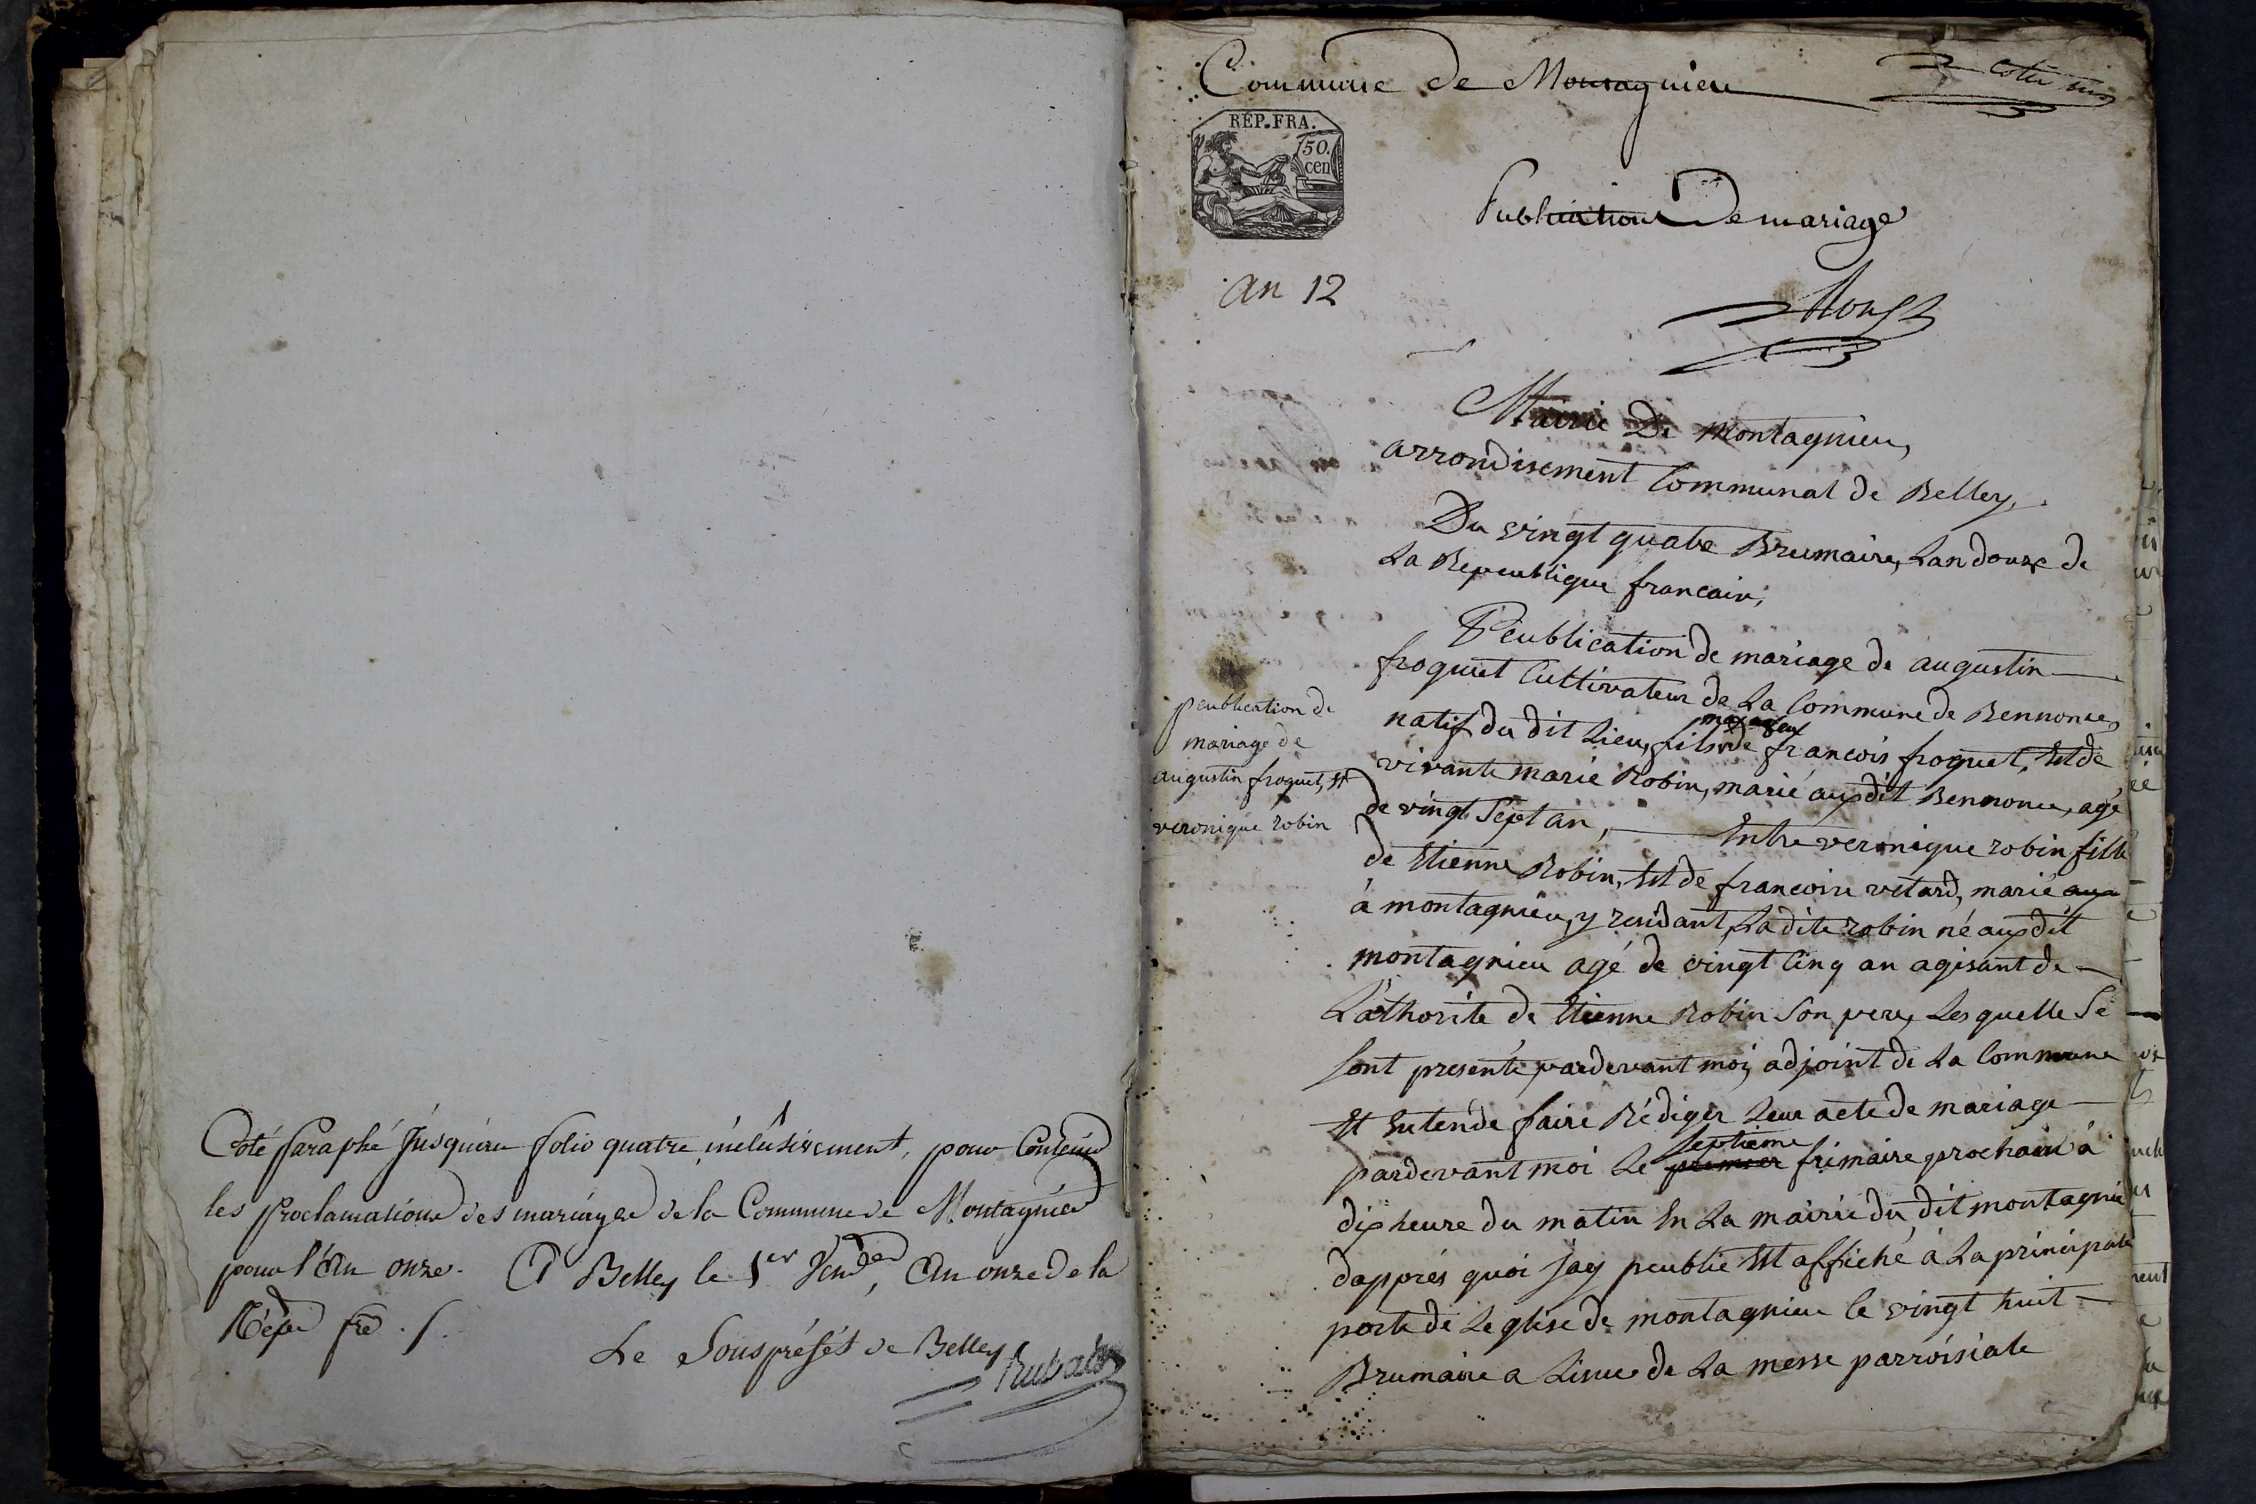 Coté paraphé jusqu'au folio quatre inclusivement, pour Contenir
les proclamations des mariages de la Commune de Montagnieu
pour l'An onze. A Belley le 1er Vend.re, An onze de la
Rép.e fre. /.
Le Souspréfet de Belley
Rubat
Commune de Montagnieu
REP.FRA.
50.
cen
Publications De mariage
an 12
Mairie De Montagnieu,
arrondisement Communal de Belley,
Du vingt quatre Brumaire, Lan douze de
La Repeublique francaiz,
Peublication de mariage de augustin
froquet Cultivateur de La Commune de Bennonce,
natif du dit Lieu, fils de francois froquet, Et de
vivante marie Robin, marié aux dit Bennonce, agé
de vingt Sept an, Entre veronique robin fille
de Etienne Robin, Et de francoise vetard, marié aux
à montagnieu, y residant, La dite robin né aux dit
montagnieu agé de vingt Cinq an agisant de
L'athorite de Etienne Robin Son pere, Les quelle Se
Sont presenté pardevant moi, adjoint de La Commune
Et Entende faire Rédiger Leur acte de mariage
septieme
pardevant moi Le premier frimaire prochain à
dix heure du matin En La mairie du dit montagnie
dapprés quoi jay peublié Et affiché à La principale
porte de Leglise de montagnieu le vingt huit
Brumaire a Lisue de La messe parroisiale
peublication de
mariage de
augustin froquet, Et
veronique robin